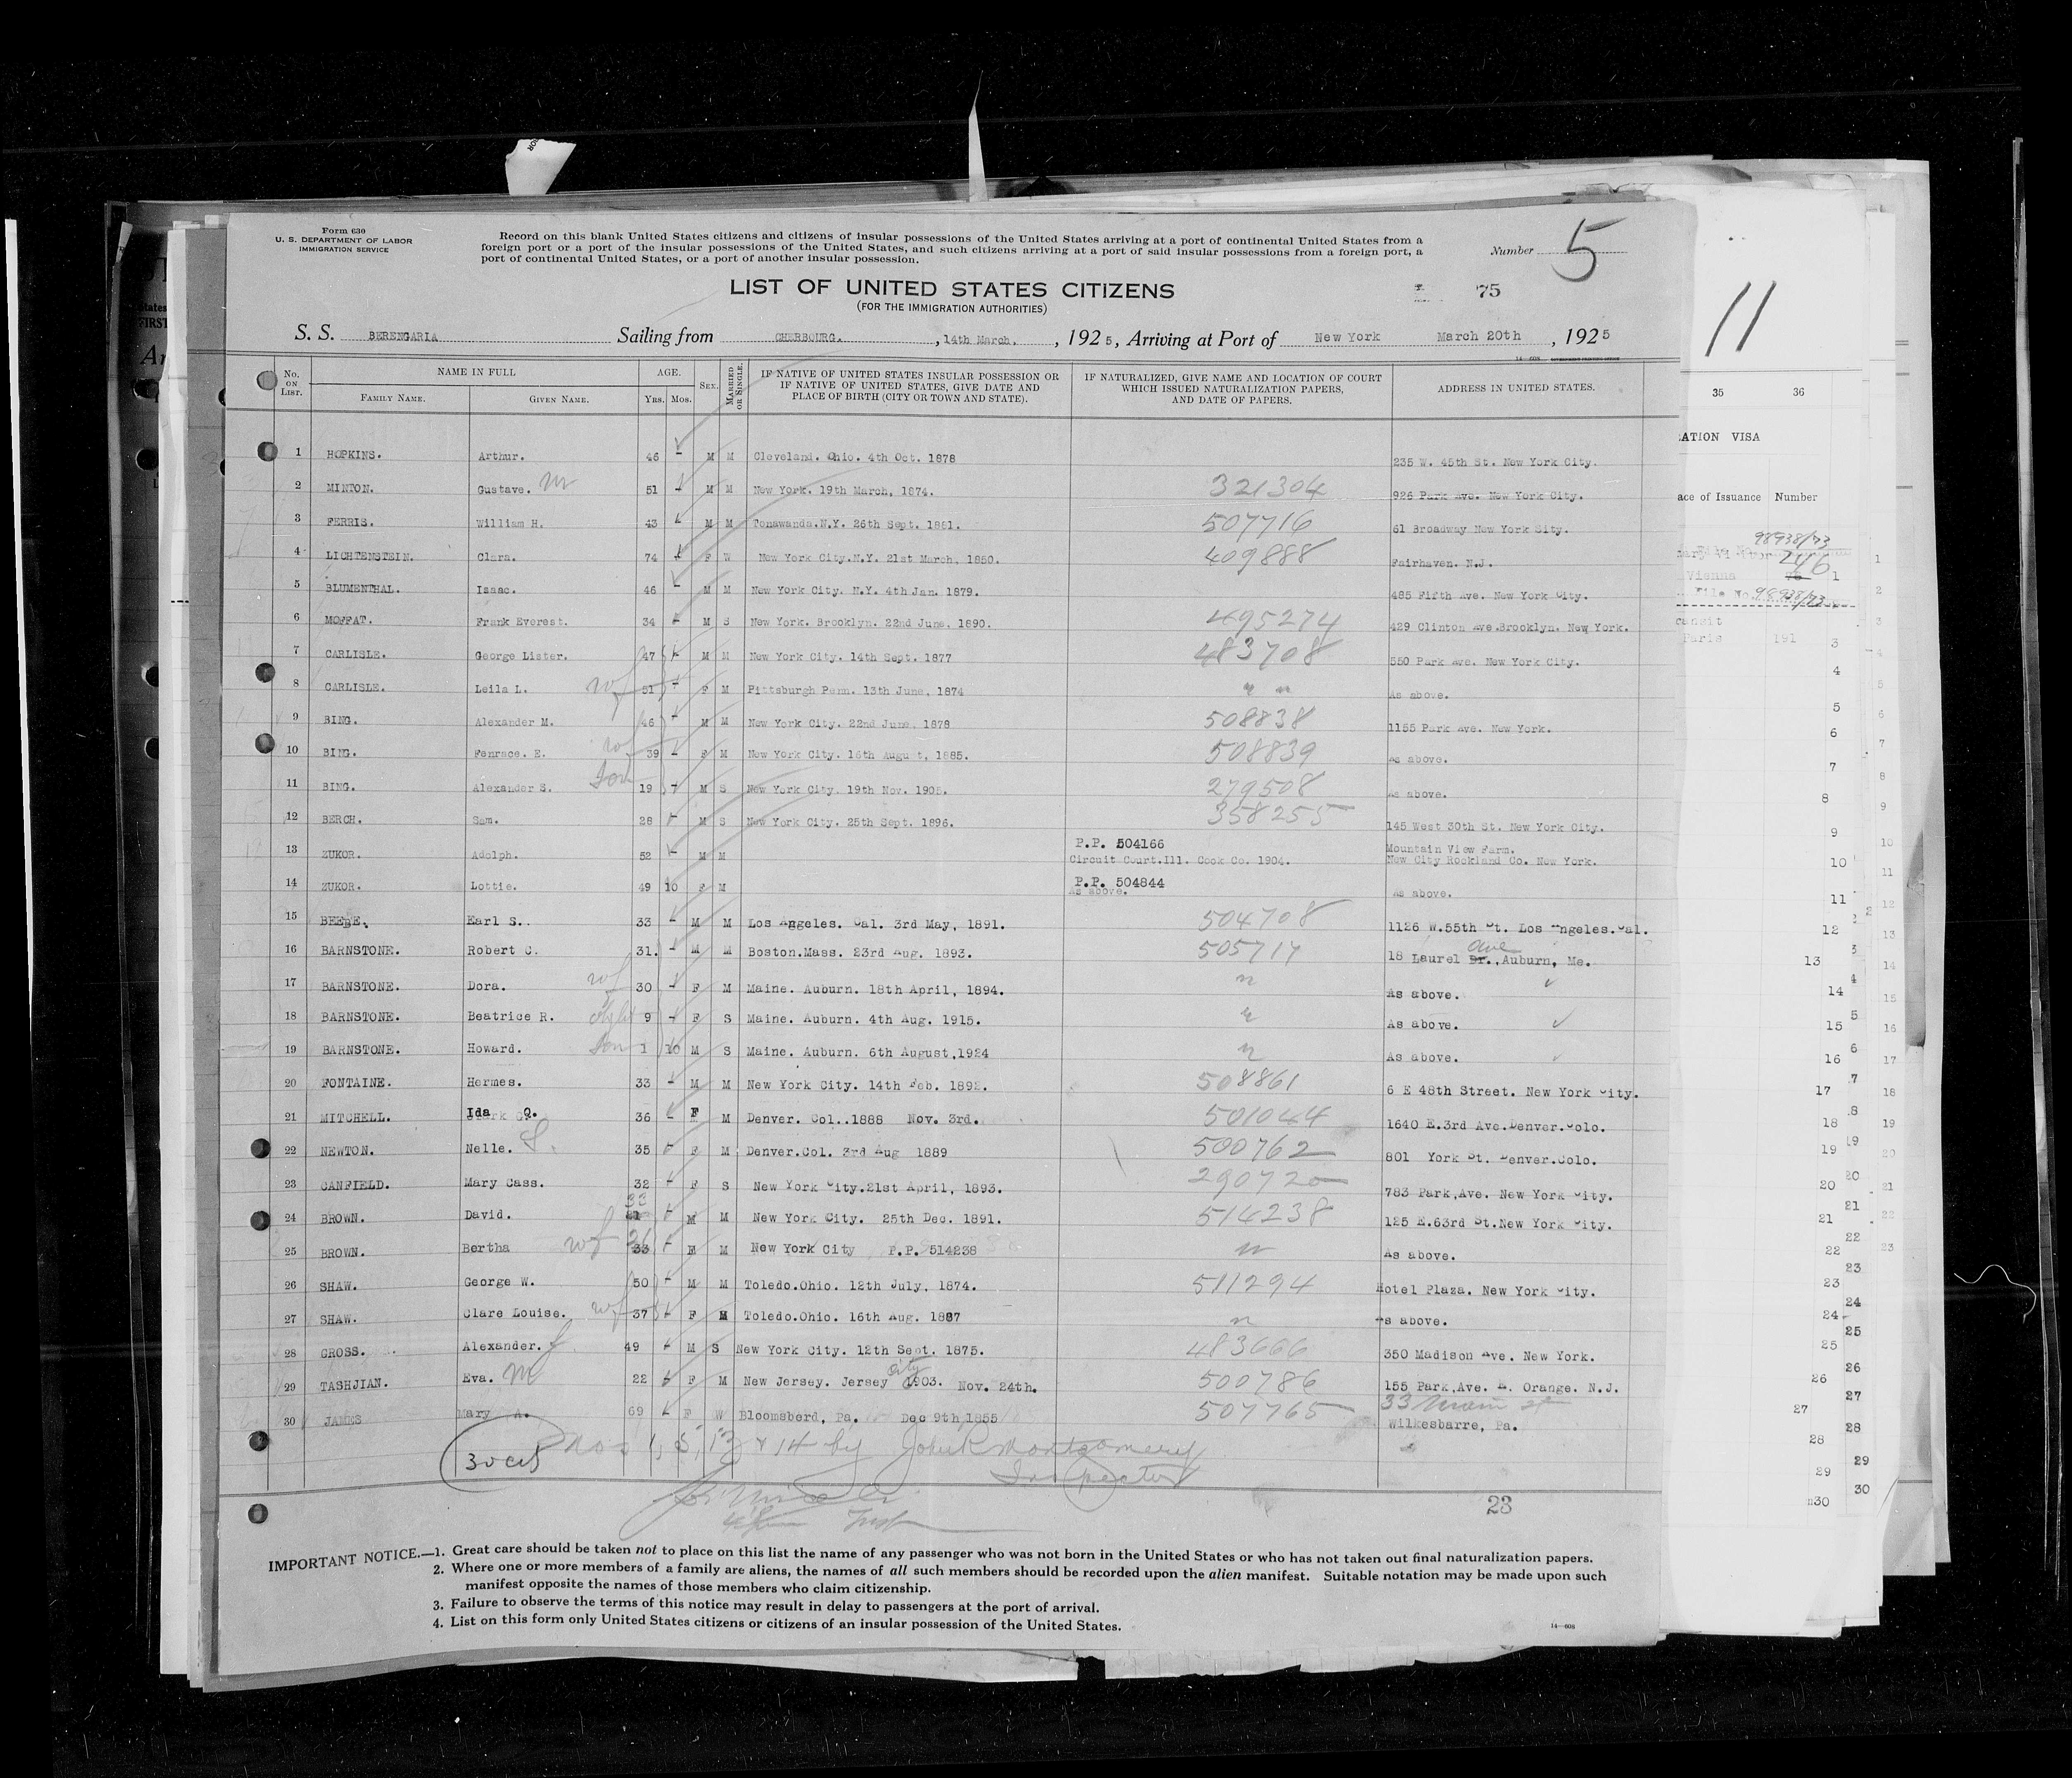 Form 630
U. S. DEPARTMENT OF LABOR
IMMIGRATION SERVICE
Record on this blank United States citizens and citizens of insular possessions of the United States arriving at a port of continental United States from a
foreign port or a port of the insular possessions of the United States, and such citizens arriving at a port of said insular possessions from a foreign port, a
port of continental United States, or a port of another insular possession.
Number 5
LIST OF UNITED STATES CITIZENS
(FOR THE IMMIGRATION AUTHORITIES)
75
S. S. BERENGARIA Sailing from CHERBOURG. , 14th March. , 1925, Arriving at Port of New York March 20th , 1925
No. ON LIST. NAME IN FULL AGE. SEX. MARRIED OR SINGLE. IF NATIVE OF UNITED STATES INSULAR POSSESSION OR IF NATIVE OF UNITED STATES, GIVE DATE AND PLACE OF BIRTH (CITY OR TOWN AND STATE). IF NATURALIZED, GIVE NAME AND LOCATION OF COURT WHICH ISSUED NATURALIZATION PAPERS, AND DATE OF PAPERS. ADDRESS IN UNITED STATES.
FAMILY NAME. GIVEN NAME. Yrs. Mos.
1 HOPKINS. Arthur. 46 - M M Cleveland. Ohio. 4th Oct. 1878 235 W. 45th St. New York City.
2 MINTON. Gustave. M 51 - M M New York. 19th March, 1874. 321304 926 Park Ave. New York City.
3 FERRIS. William H. 43 M M Tonawanda.N.Y. 26th Sept. 1881. 507716 61 Broadway New York Sity.
4 LICHTENSTEIN. Clara. 74 - F W New York City.N.Y. 21st March, 1850. 409888 Fairhaven. N.J.
5 BLUMENTHAL. Isaac. 46 - M M New York City. N.Y. 4th Jan. 1879. 485 Fifth Ave. New York City.
6 MOFFAT. Frank Everest. 34 - M S New York. Brooklyn. 22nd June. 1890. 495274 429 Clinton Ave.Brooklyn. New York.
7 CARLISLE. George Lister. 47 - M M New York City. 14th Sept. 1877 483708 550 Park Ave. New York City.
8 CARLISLE. Leila L. wf 51 - F M Pittsburgh Penn. 13th June, 1874 " " As above.
9 BING. Alexander M. 46 - M M New York City. 22nd June. 1878 508838 1155 Park Ave. New York.
10 BING. Fenrace. E. wf 39 - F M New York City. 16th Augu t, 1885. 508839 As above.
11 BING. Alexander S. Son 19 7 M S New York City. 19th Nov. 1905. 279508 As above.
12 BERCH. Sam. 28 - M S New York City. 25th Sept. 1896. 358255 145 West 30th St. New York City.
13 ZUKOR. Adolph. 52 - M M P.P. 504166 Mountain View Farm.
Circuit Court.Ill. Cook Co. 1904. New City Rockland Co. New York.
14 ZUKOR. Lottie. 49 10 F M P.P. 504844
As above. As above.
15 BEEBE. Earl S. 33 - M M Los Angeles. Cal. 3rd May, 1891. 504708 1126 W.55th St. Los Angeles.Cal.
16 BARNSTONE. Robert C. 31. - M M Boston.Mass. 23rd Aug. 1893. 505717 18 Laurel Dr. Ave, Auburn, Me.
17 BARNSTONE. Dora. wf 30 - F M Maine. Auburn. 18th April, 1894. " As above.
18 BARNSTONE. Beatrice R. 9 - F S Maine. Auburn. 4th Aug. 1915. " As above.
19 BARNSTONE. Howard. Son 1 10 M S Maine. Auburn. 6th August,1924 " As above.
20 FONTAINE. Hermes. 33 - M M New York City. 14th Feb. 1892. 508861 6 E 48th Street. New York City.
21 MITCHELL. Ida Q. 36 - F M Denver. Col..1888 Nov. 3rd. 501044 1640 E.3rd Ave.Denver.Colo.
22 NEWTON. Nelle. S. 35 - F M Denver.Col. 3rd Aug 1889 500762 801 York St. Denver.Colo.
23 CANFIELD. Mary Cass. 32 - F S New York City.21st April, 1893. 290720 783 Park,Ave. New York City.
24 BROWN. David. 33 - M M New York City. 25th Dec. 1891. 514238 125 E.63rd St.New York City.
25 BROWN. Bertha wf 33 - F M New York City P.P. 514238 " As above.
26 SHAW. George W. 50 - M M Toledo.Ohio. 12th July, 1874. 511294 Hotel Plaza. New York City.
27 SHAW. Clare Louise. wf 37 - F M Toledo.Ohio. 16th Aug. 1887 " As above.
28 GROSS. Alexander. J. 49 - M S New York City. 12th Sept. 1875. 483666 350 Madison Ave. New York.
29 TASHJIAN. Eva. M 22 - F M New Jersey. Jersey City 1903. Nov. 24th. 500786 155 Park,Ave. E. Orange. N.J.
30 JAMES Mary A. 69 - F W Bloomsberd, Pa. Dec 9th 1855 507765 33 Main St
Wilkesbarre, Pa.
30 cits nos 1, 5, 13 & 14 by John R Montgomery
Inspector
23
IMPORTANT NOTICE.—1. Great care should be taken not to place on this list the name of any passenger who was not born in the United States or who has not taken out final naturalization papers.
2. Where one or more members of a family are aliens, the names of all such members should be recorded upon the alien manifest. Suitable notation may be made upon such
manifest opposite the names of those members who claim citizenship.
3. Failure to observe the terms of this notice may result in delay to passengers at the port of arrival.
4. List on this form only United States citizens or citizens of an insular possession of the United States.
14—608
11
35 36
ATION VISA
ace of Issuance Number
98938/73
246
Vienna
File No. 98938/73
Paris 191